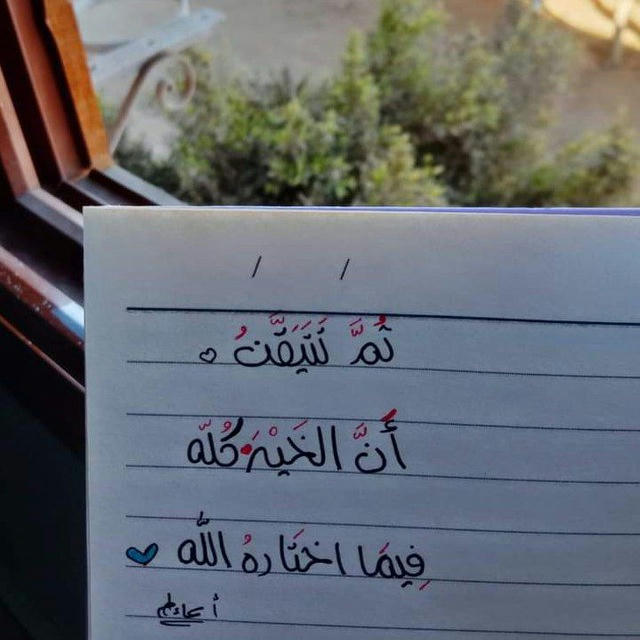 / /
ثُمَّ تَتَيَقَّنُ
أَنَّ الخَيْرَ كُلّه
فِيمَا اختَارهُ اللّه